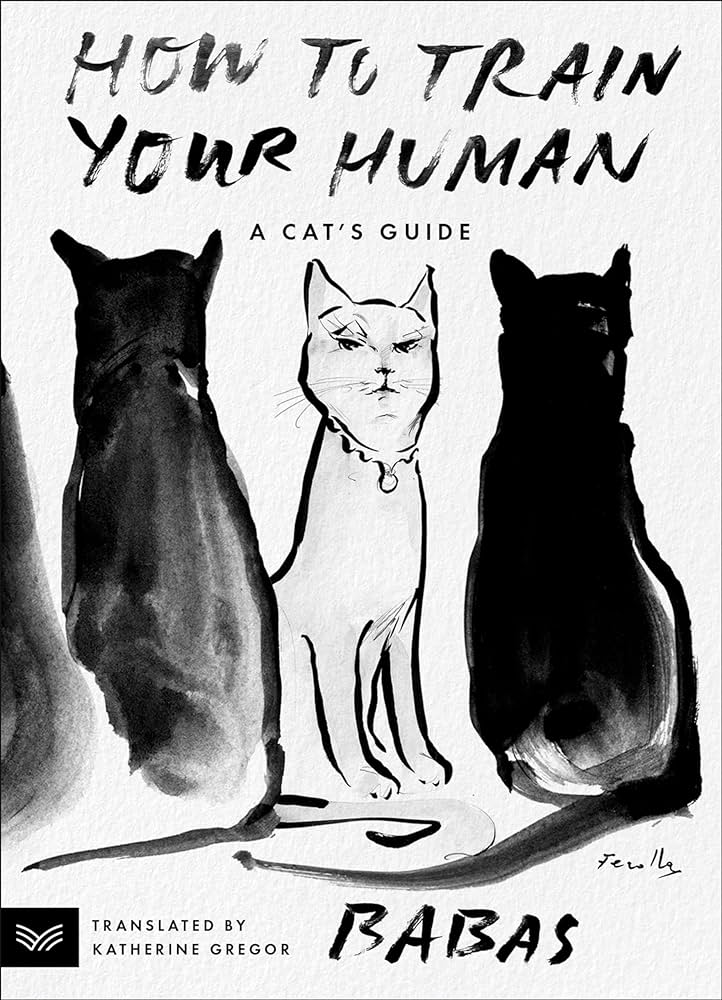 HOW TO TRAIN
YOUR HUMAN
A CAT'S GUIDE
Ferolla
TRANSLATED BY
KATHERINE GREGOR
BABAS